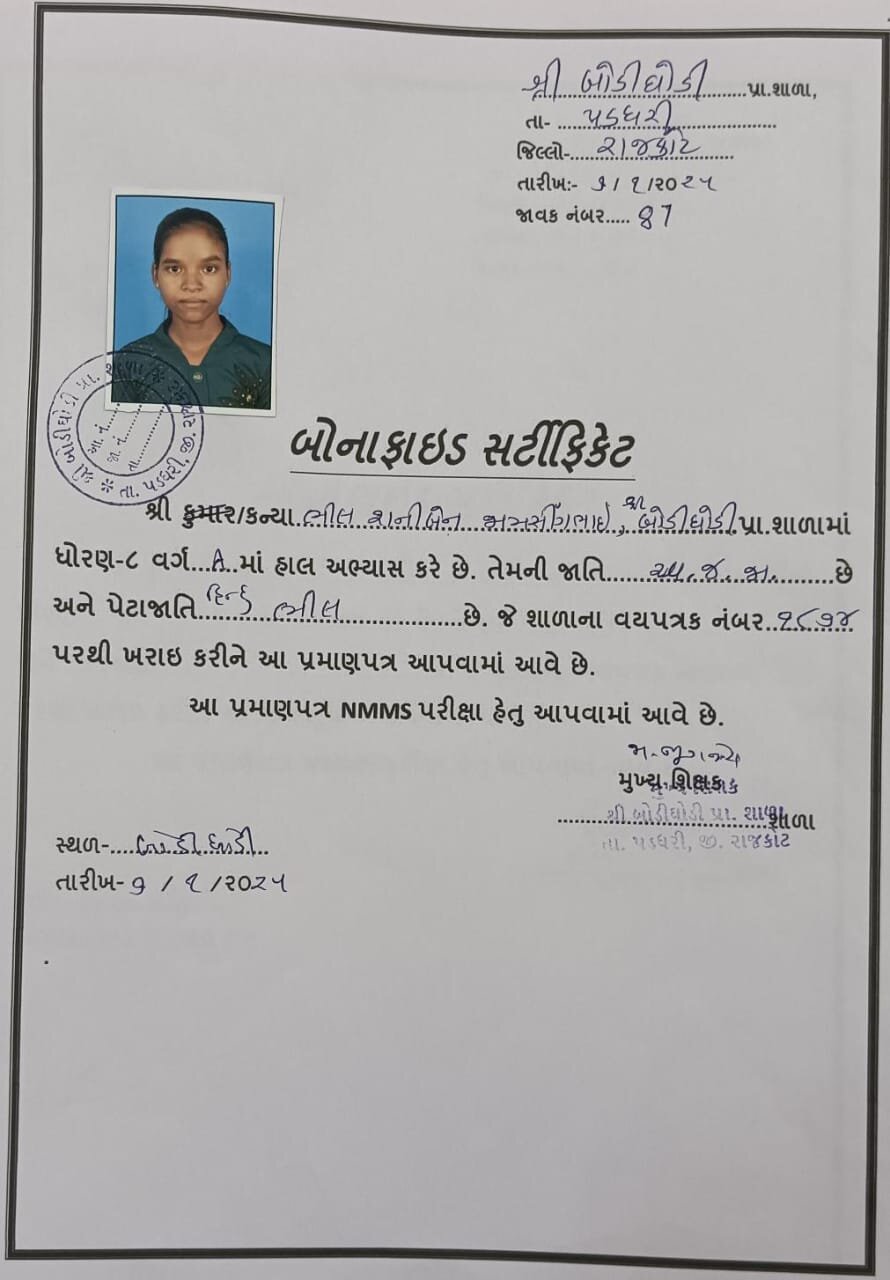 શ્રી બોડીઘોડી પ્રા.શાળા,
તા- પડધરી
જિલ્લો- રાજકોટ
તારીખ:- ૭/૧/૨૦૨૫
જાવક નંબર..... 87
શ્રી બોડીઘોડી પ્રા. શાળા
તા. પડધરી, જી. રાજકોટ
આ. નં.
જા. નં.
તા.
બોનાફાઇડ સર્ટીફિકેટ
શ્રી કુમાર/કન્યા ભીલ શાનીબેન શ્રી બોડીઘોડી પ્રા.શાળામાં
ધોરણ-૮ વર્ગ...A..માં હાલ અભ્યાસ કરે છે. તેમની જાતિ અ.જ.જા. છે
અને પેટાજાતિ હિન્દુ ભીલ છે. જે શાળાના વયપત્રક નંબર
પરથી ખરાઇ કરીને આ પ્રમાણપત્ર આપવામાં આવે છે.
આ પ્રમાણપત્ર NMMS પરીક્ષા હેતુ આપવામાં આવે છે.
મુખ્ય શિક્ષક
શ્રી બોડીઘોડી પ્રા. શાળા
શાળા
તા. પડધરી, જી. રાજકોટ
સ્થળ- બોડીઘોડી
તારીખ- ૭/૧/૨૦૨૫